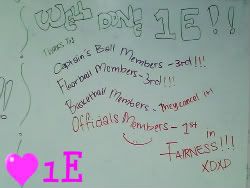 WELL DONE 1E!!
THANKS TO:
Captain's Ball Members - 3rd!!!
Floorball Members - 3rd!!!
Basketball Members - They cancel it!
Officials Members - 1st
in
FAIRNESS!!!
XDXD
1E